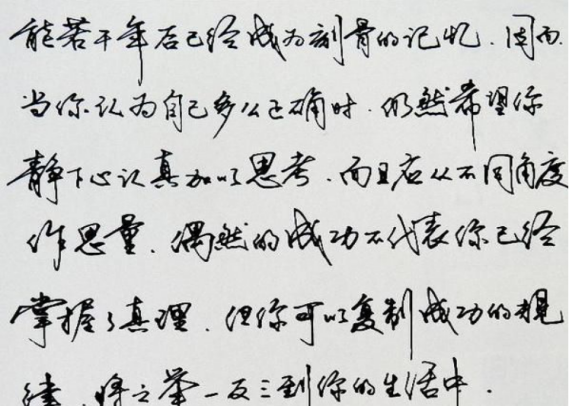 能若干年后已经成为刻骨的记忆.因而.
当你认为自己多么正确时.仍然希望你
静下心认真加以思考.而且应从不同角度
作思量.偶然的成功不代表你已经
掌握了真理.但你可以复制成功的规
律.将之举一反三到你的生活中.